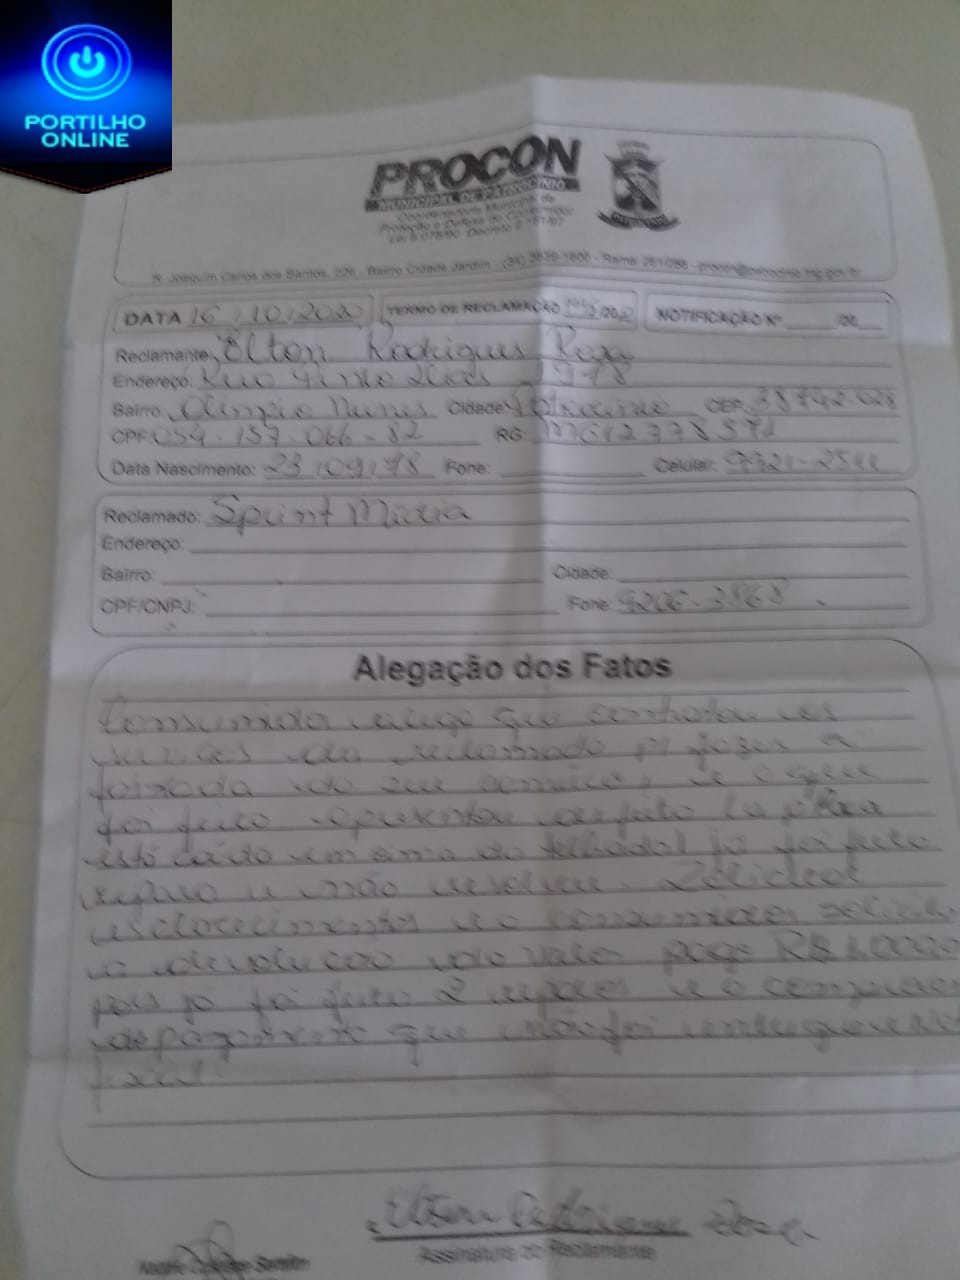 PORTILHO
ONLINE
PROCON
MUNICIPAL DE PATROCÍNIO
Coordenadoria Municipal de
Proteção e Defesa do Consumidor
Lei 8.078/90 Decreto 2.181/97
R. Joaquim Carlos dos Santos, 226 - Bairro Cidade Jardim - (34) 3839-1800 - Ramal
DATA 16/10/2020 TERMO DE RECLAMAÇÃO /20 NOTIFICAÇÃO Nº /20
Reclamante: Elton Rodrigues
Endereço: Rua 1978
Bairro: Olímpio Nunes Cidade: Patrocínio CEP:
CPF: RG:
Data Nascimento: 23/09/78 Fone: Celular:
Reclamado: Sprint Midia
Endereço:
Bairro: Cidade:
CPF/CNPJ: Fone:
Alegação dos Fatos
Consumidor alega que contratou os
serviços da reclamado p/ fazer a
faixada do seu comércio, e o que
foi feito apresentou defeito (a placa
está caído em cima do telhado) já foi feito
reparo e não resolveu. Solicito
esclarecimentos e o consumidor
a devolução do valor pago R$
pois já foi feito 2 reparos e o
de pagamento que não foi entregue
fiscal.
Elton Rodrigues
Assinatura do Reclamante